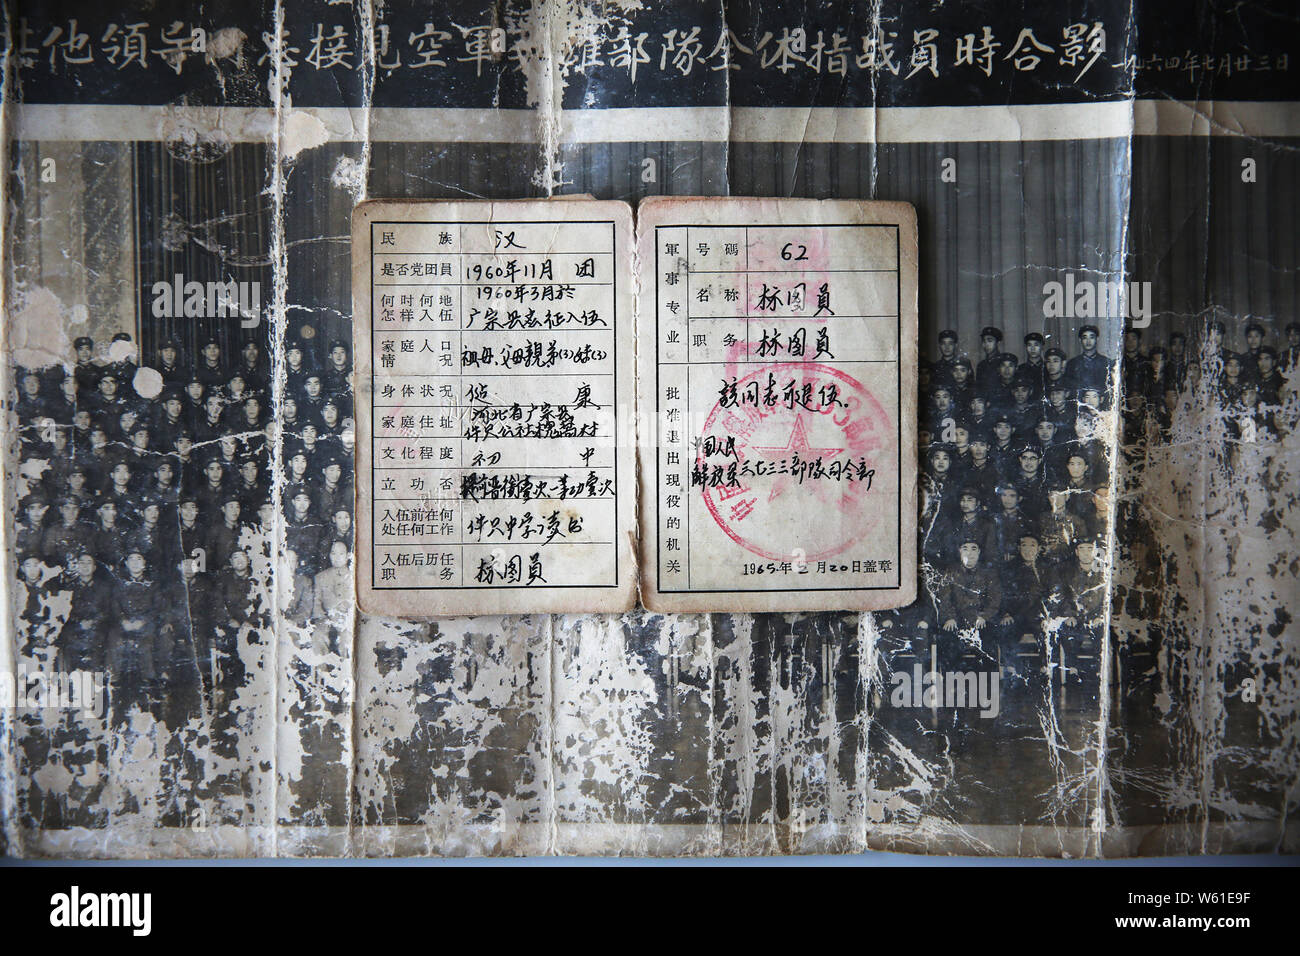 其他領导
接見空軍
雄部隊全体指战員時合影
一九六四年七月廿三日
民族 汉
是否党团員 1960年11月 团
何时何地怎样入伍 1960年3月於
广宗县志征入伍
家庭人口情况 祖母、父母親弟(3)妹(3)
身体状况 健康
家庭住址 河北省广宗县
件只公社槐窩村
文化程度 初中
立功否 提前晋衔壹次.一等功壹次
入伍前在何处任何工作 件只中学读书
入伍后历任职务 标图員
軍事专业
号碼 62
名称 标图員
职务 标图員
批准退出現役的机关
該同志可退伍。
国人民
解放軍三七三三部隊司令部
1965年2月20日盖章
alamy
W61E9F
www.alamy.com